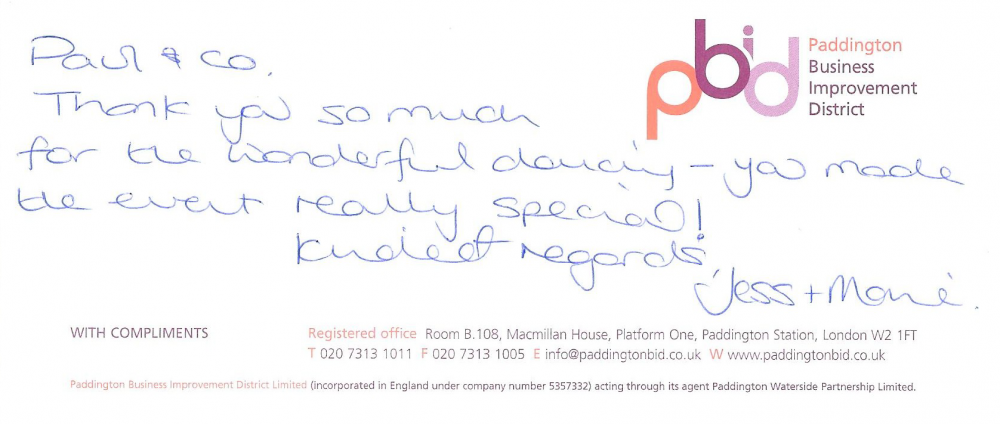 Paul & co,
Thank you so much
for the wonderful dancing – you made
the event really special!
Kindest regards,
Jess + Marie.
pbid
Paddington
Business
Improvement
District
WITH COMPLIMENTS
Registered office Room B.108, Macmillan House, Platform One, Paddington Station, London W2 1FT
T 020 7313 1011 F 020 7313 1005 E info@paddingtonbid.co.uk W www.paddingtonbid.co.uk
Paddington Business Improvement District Limited (incorporated in England under company number 5357332) acting through its agent Paddington Waterside Partnership Limited.